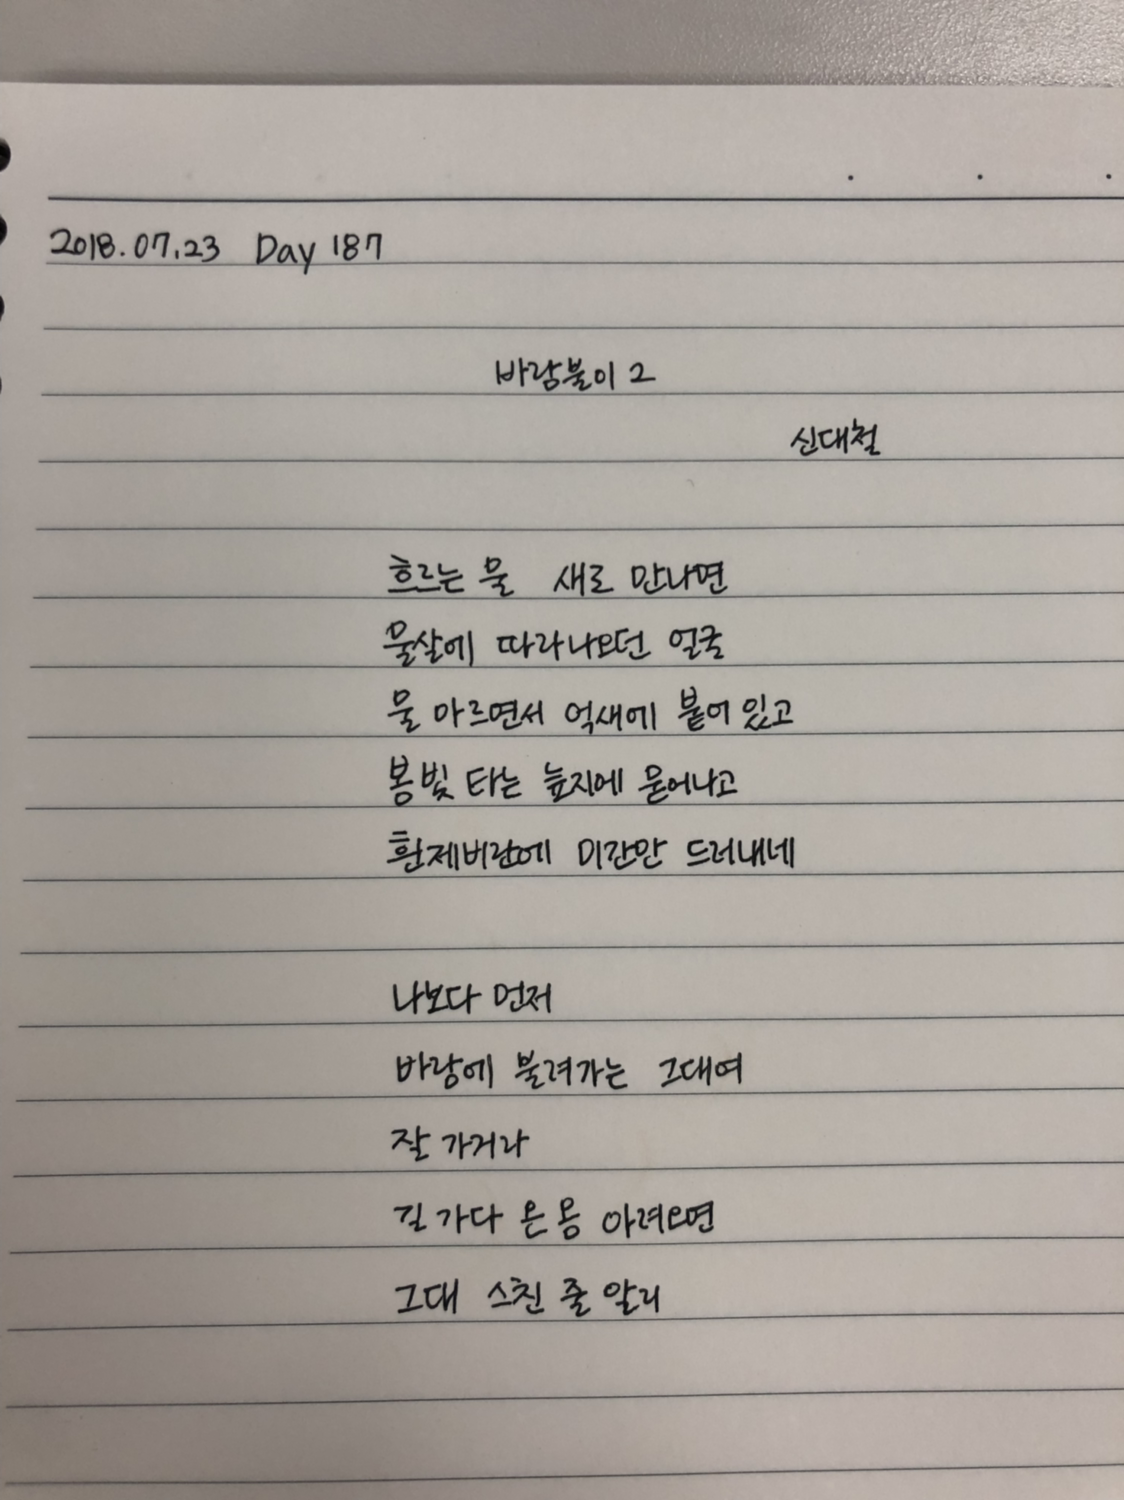 2018.07.23 Day 187
바람불이 2
신대철
흐르는 물 새로 만나면
물살에 따라나오던 얼굴
물 마르면서 억새에 붙어 있고
봄빛 타는 늪지에 묻어나고
흰제비란에 미간만 드러내네
나보다 먼저
바람에 불려가는 그대여
잘 가거라
길 가다 온 몸 아려오면
그대 스친 줄 알리